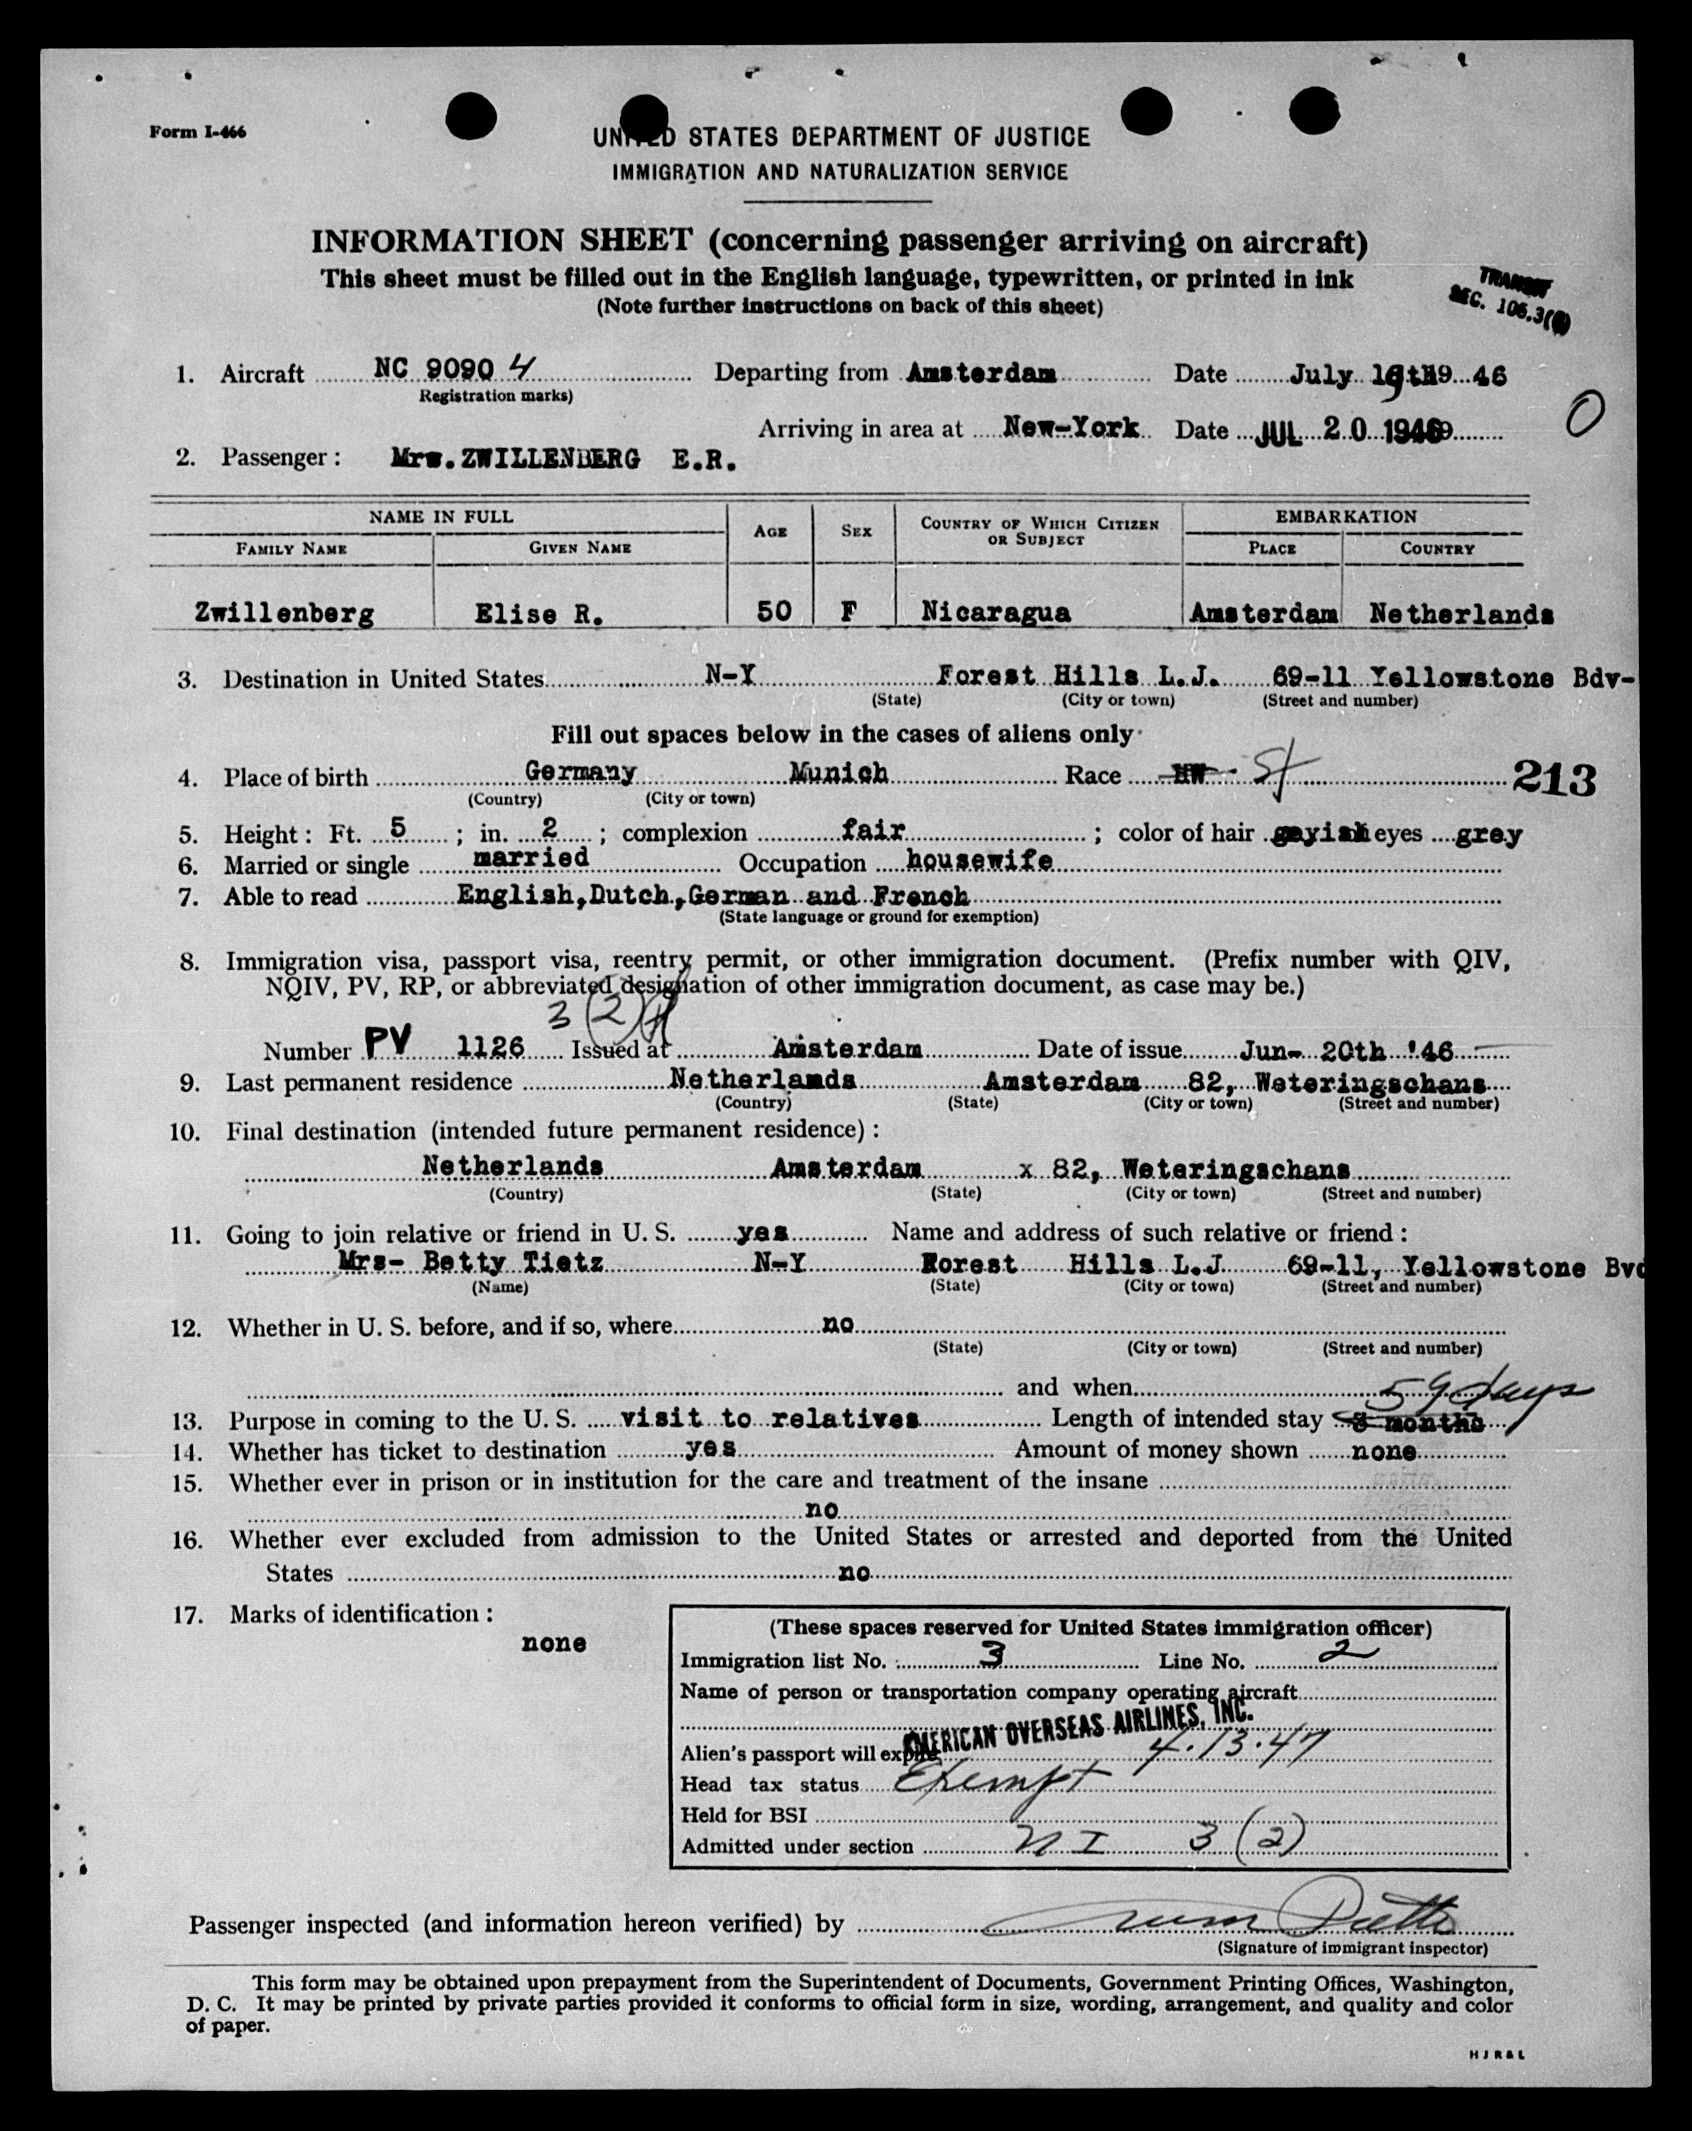 Form I-466
UNITED STATES DEPARTMENT OF JUSTICE
IMMIGRATION AND NATURALIZATION SERVICE
INFORMATION SHEET (concerning passenger arriving on aircraft)
This sheet must be filled out in the English language, typewritten, or printed in ink
(Note further instructions on back of this sheet)
TRANSIT
SEC. 106.3
1. Aircraft NC 9090 4 Departing from Amsterdam Date July 19th 19 46
Registration marks)
Arriving in area at New-York Date JUL 20 1946
O
2. Passenger: Mrs. ZWILLENBERG E.R.
NAME IN FULL AGE SEX COUNTRY OF WHICH CITIZEN OR SUBJECT EMBARKATION
FAMILY NAME GIVEN NAME PLACE COUNTRY
Zwillenberg Elise R. 50 F Nicaragua Amsterdam Netherlands
3. Destination in United States N-Y Forest Hills L.J. 69-11 Yellowstone Bdv-
(State) (City or town) (Street and number)
Fill out spaces below in the cases of aliens only
4. Place of birth Germany Munich Race HW St 213
(Country) (City or town)
5. Height: Ft. 5; in. 2; complexion fair; color of hair eyes grey
6. Married or single married Occupation housewife
7. Able to read English, Dutch, German and French
(State language or ground for exemption)
8. Immigration visa, passport visa, reentry permit, or other immigration document. (Prefix number with QIV,
NQIV, PV, RP, or abbreviated designation of other immigration document, as case may be.)
3 (2)
Number PV 1126 Issued at Amsterdam Date of issue Jun- 20th '46
9. Last permanent residence Netherlands Amsterdam 82, Weteringschans
(Country) (State) (City or town) (Street and number)
10. Final destination (intended future permanent residence):
Netherlands Amsterdam x 82, Weteringschans
(Country) (State) (City or town) (Street and number)
11. Going to join relative or friend in U. S. yes Name and address of such relative or friend:
Mrs- Betty Tietz N-Y Forest Hills L.J 69-11, Yellowstone Bvd
(Name) (State) (City or town) (Street and number)
12. Whether in U. S. before, and if so, where no
(State) (City or town) (Street and number)
and when
59 days
13. Purpose in coming to the U. S. visit to relatives Length of intended stay 3 months
14. Whether has ticket to destination yes Amount of money shown none
15. Whether ever in prison or in institution for the care and treatment of the insane
no
16. Whether ever excluded from admission to the United States or arrested and deported from the United
States no
17. Marks of identification:
none
(These spaces reserved for United States immigration officer)
Immigration list No. 3 Line No. 2
Name of person or transportation company operating aircraft
AMERICAN OVERSEAS AIRLINES, INC.
Alien's passport will expire 4.13.47
Head tax status Exempt
Held for BSI
Admitted under section NI 3 (2)
Passenger inspected (and information hereon verified) by
(Signature of immigrant inspector)
This form may be obtained upon prepayment from the Superintendent of Documents, Government Printing Offices, Washington,
D. C. It may be printed by private parties provided it conforms to official form in size, wording, arrangement, and quality and color
of paper.
H J R & L